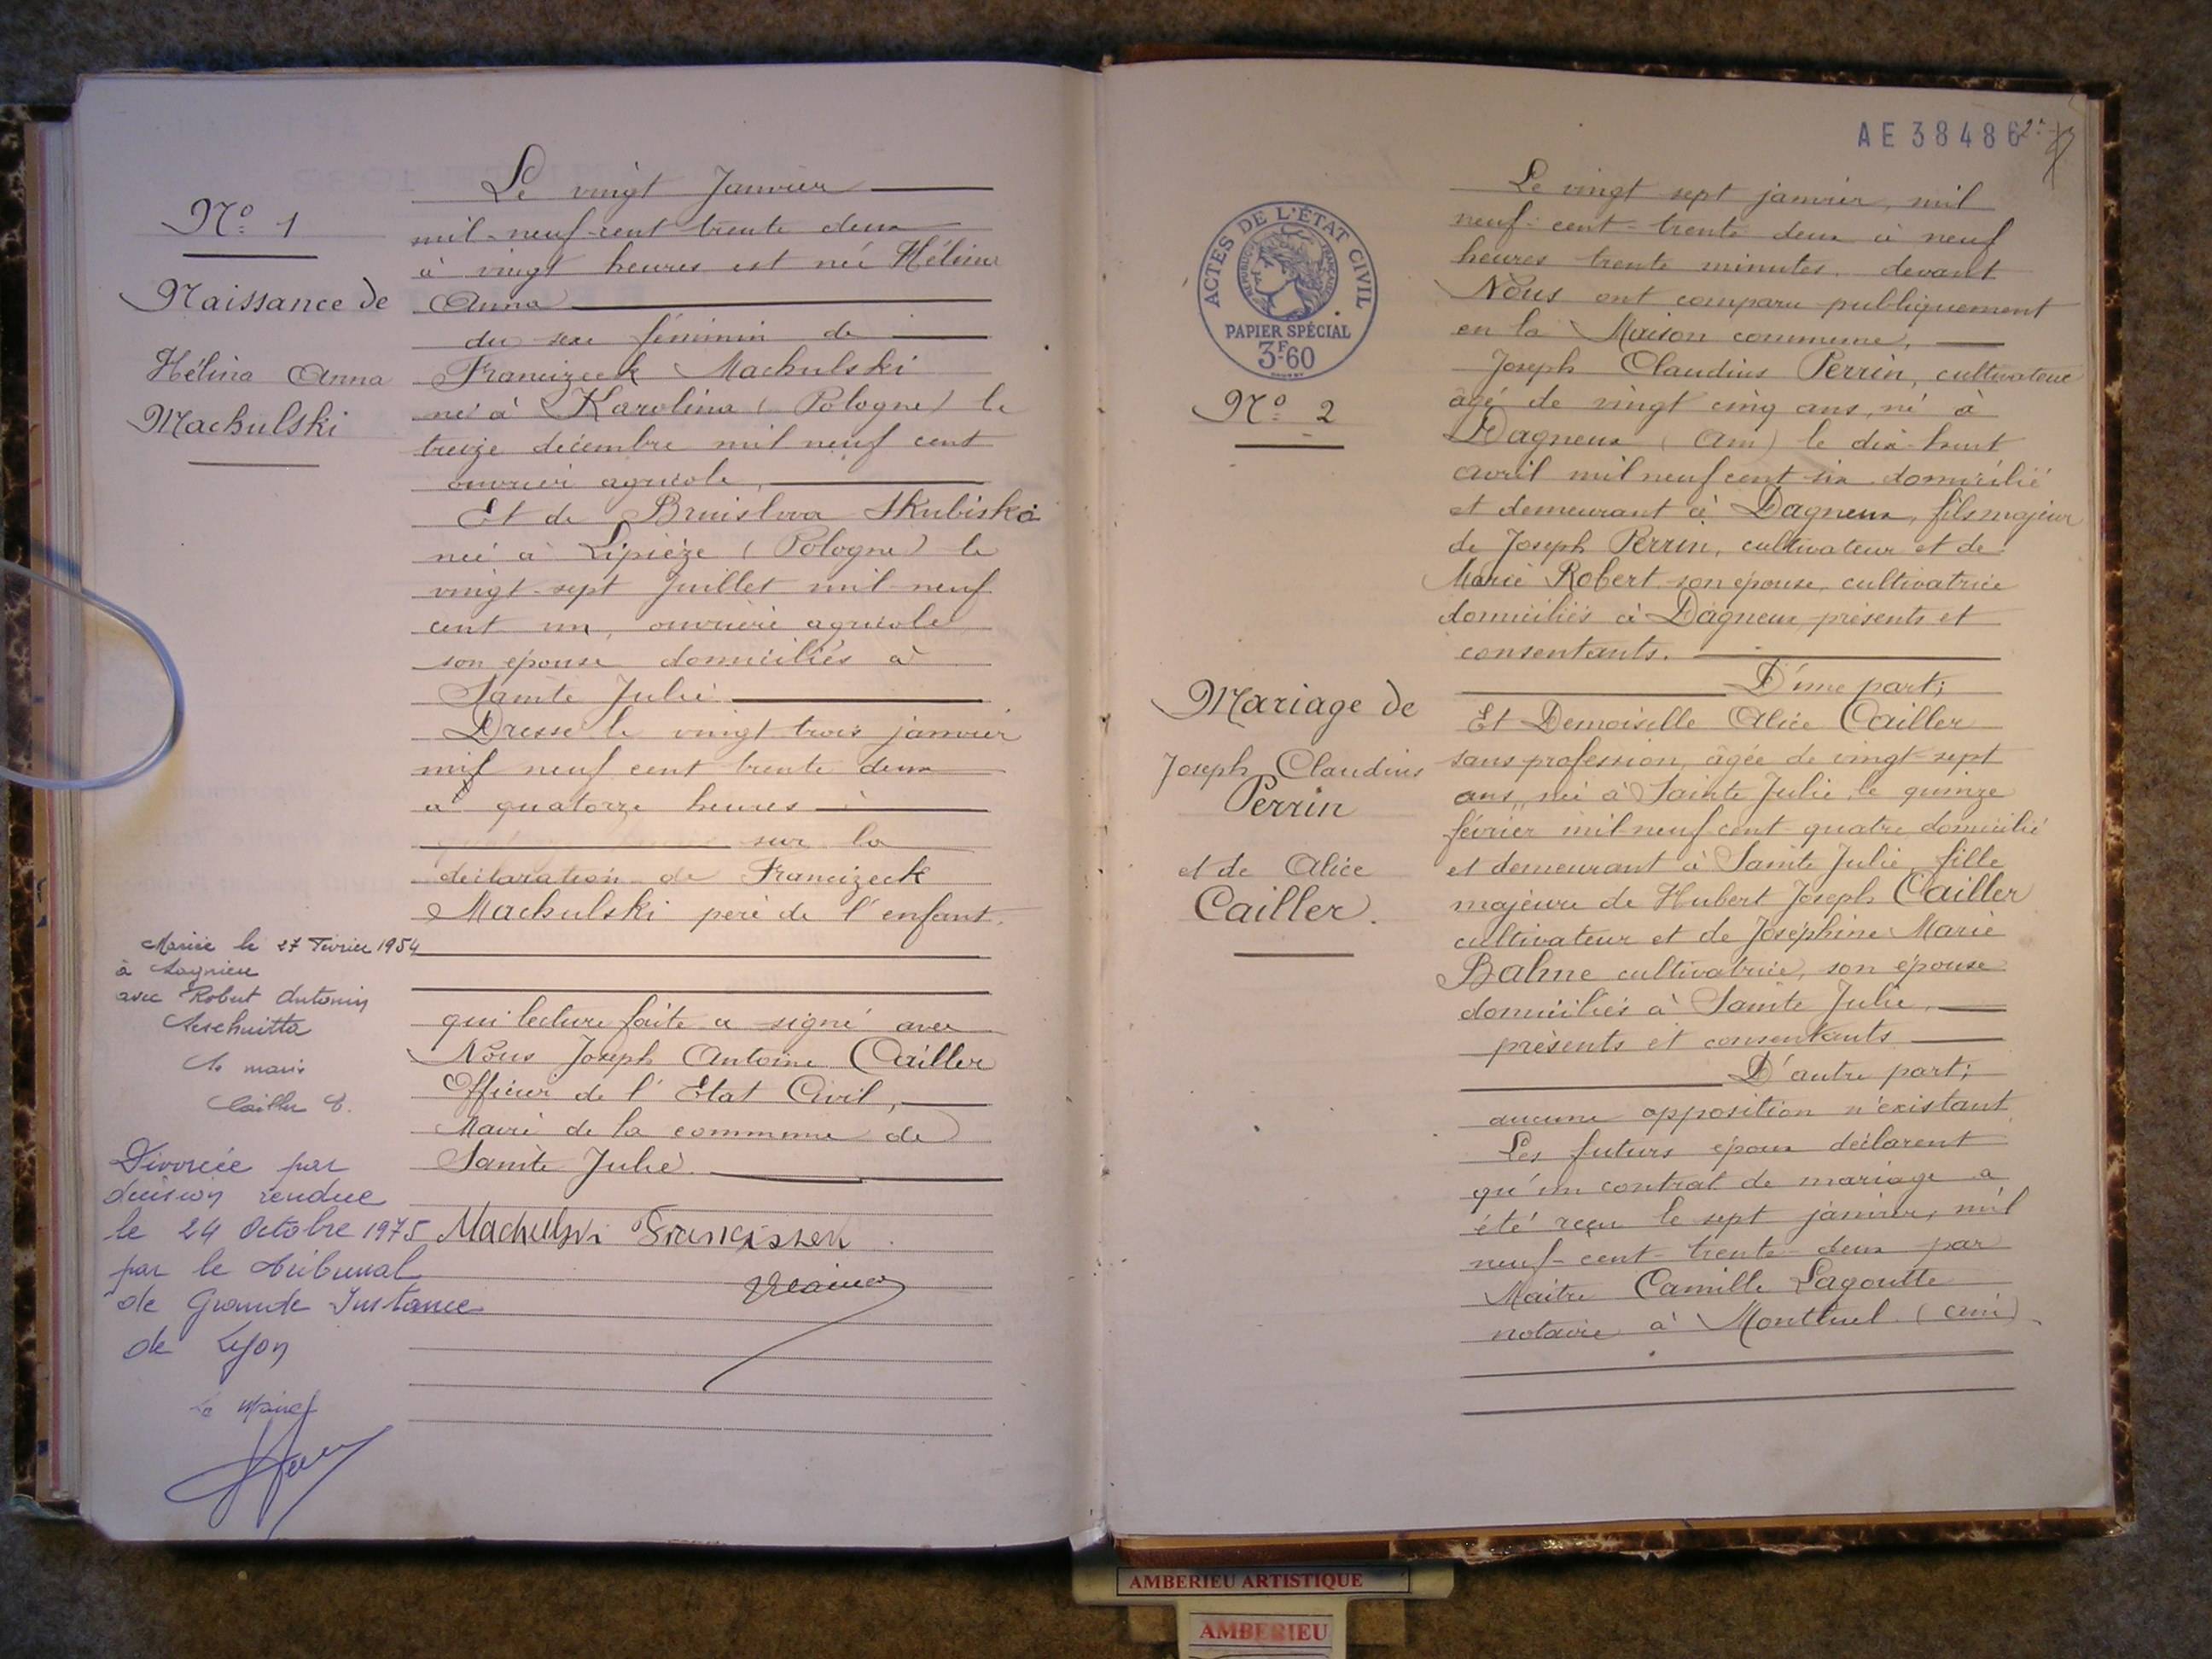 N° 1
Naissance de
Hélina Anna
Machulski
Le vingt Janvier
mil-neuf-cent trente deux
à vingt heures est née Hélina
Anna
du sexe féminin de
Francizeck Machulski
né à Karolina (Pologne) le
treize décembre mil neuf cent
ouvrier agricole,
Et de Bruislova Skubiska
née à Lipièze (Pologne) le
vingt-sept Juillet mil-neuf
cent un, ouvrière agricole
son épouse domiciliés à
Sainte Julie
Dressé le vingt trois janvier
mil neuf cent trente deux
à quatorze heures
sur la
déclaration de Francizeck
Machulski père de l'enfant.
qui lecture faite a signé avec
Nous Joseph Antoine Cailler
Officier de l'Etat Civil,
Maire de la commune de
Sainte Julie.
Machulski Franciszek
Mariée le 27 Février 1954
à Lagnieu
avec Robert Antonin
Le maire
Cailler
Divorcée par
décision rendue
le 24 Octobre 1975
par le tribunal
de Grande Instance
de Lyon
Le Maire
AE 38486
ACTES DE L'ÉTAT CIVIL
RÉPUBLIQUE FRANÇAISE
PAPIER SPÉCIAL
3F60
N° 2
Mariage de
Joseph Claudius
Perrin
et de Alice
Cailler.
Le vingt sept janvier, mil
neuf-cent-trente deux à neuf
heures trente minutes. devant
Nous ont comparu publiquement
en la Maison commune,
Joseph Claudius Perrin, cultivateur
âgé de vingt cinq ans, né à
Dagneux (Ain) le dix-huit
avril mil neuf cent six domicilié
et demeurant à Dagneux, fils majeur
de Joseph Perrin, cultivateur et de
Marie Robert son épouse, cultivatrice
domiciliés à Dagneux, présents et
consentants.
D'une part;
Et Demoiselle Alice Cailler
sans profession, âgée de vingt-sept
ans, née à Sainte Julie, le quinze
février mil-neuf-cent-quatre domicilié
et demeurant à Sainte Julie, fille
majeure de Hubert Joseph Cailler
cultivateur et de Joséphine Marie
Balme cultivatrice, son épouse
domiciliés à Sainte Julie,
présents et consentants
D'autre part;
aucune opposition n'existant
Les futurs époux déclarent
qu'un contrat de mariage a
été reçu le sept janvier, mil
neuf-cent-trente-deux par
Maître Camille Lagoutte
notaire à Montluel (Ain).
AMBERIEU ARTISTIQUE
AMBERIEU